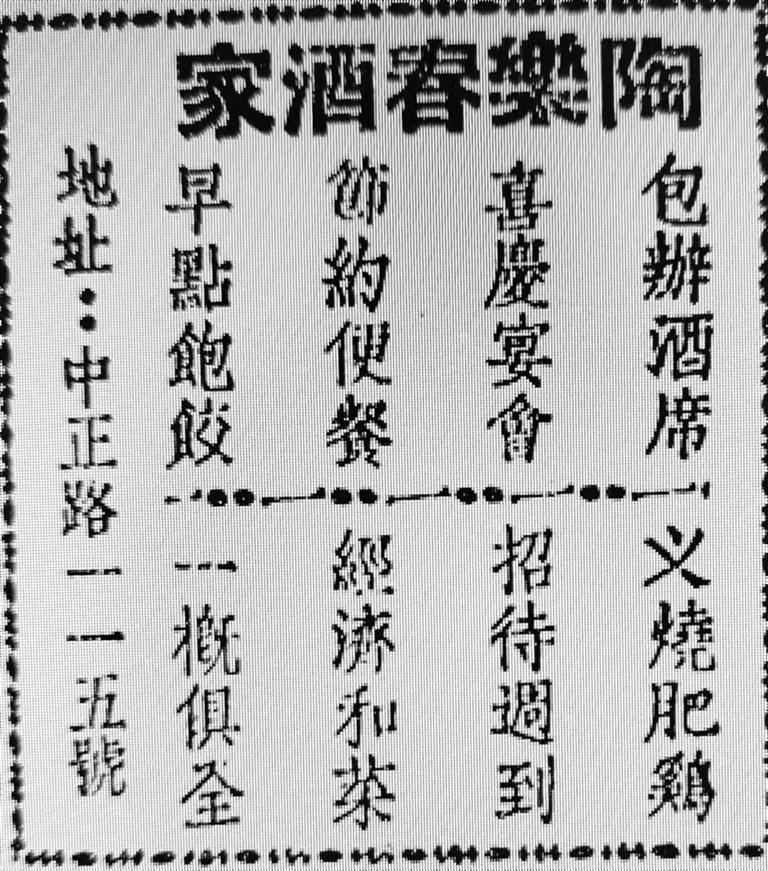 陶樂春酒家
包辦酒席
喜慶宴會
節約便餐
早點飽餃
义燒肥鷄
招待週到
經濟和菜
一概俱全
地址：中正路一一五號